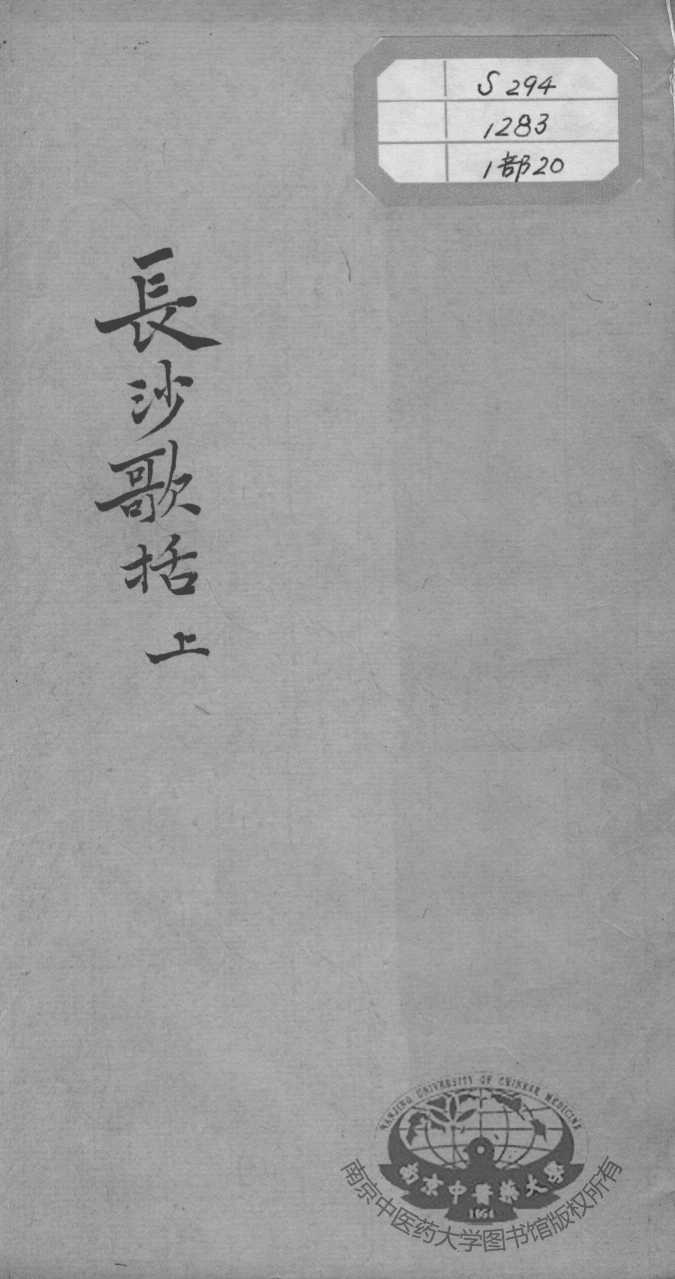 S 294
1283
1部20
長沙歌括 上
NANJING UNIVERSITY OF CHINESE MEDICINE
南京中醫藥大學
1954
南京中医药大学图书馆版权所有